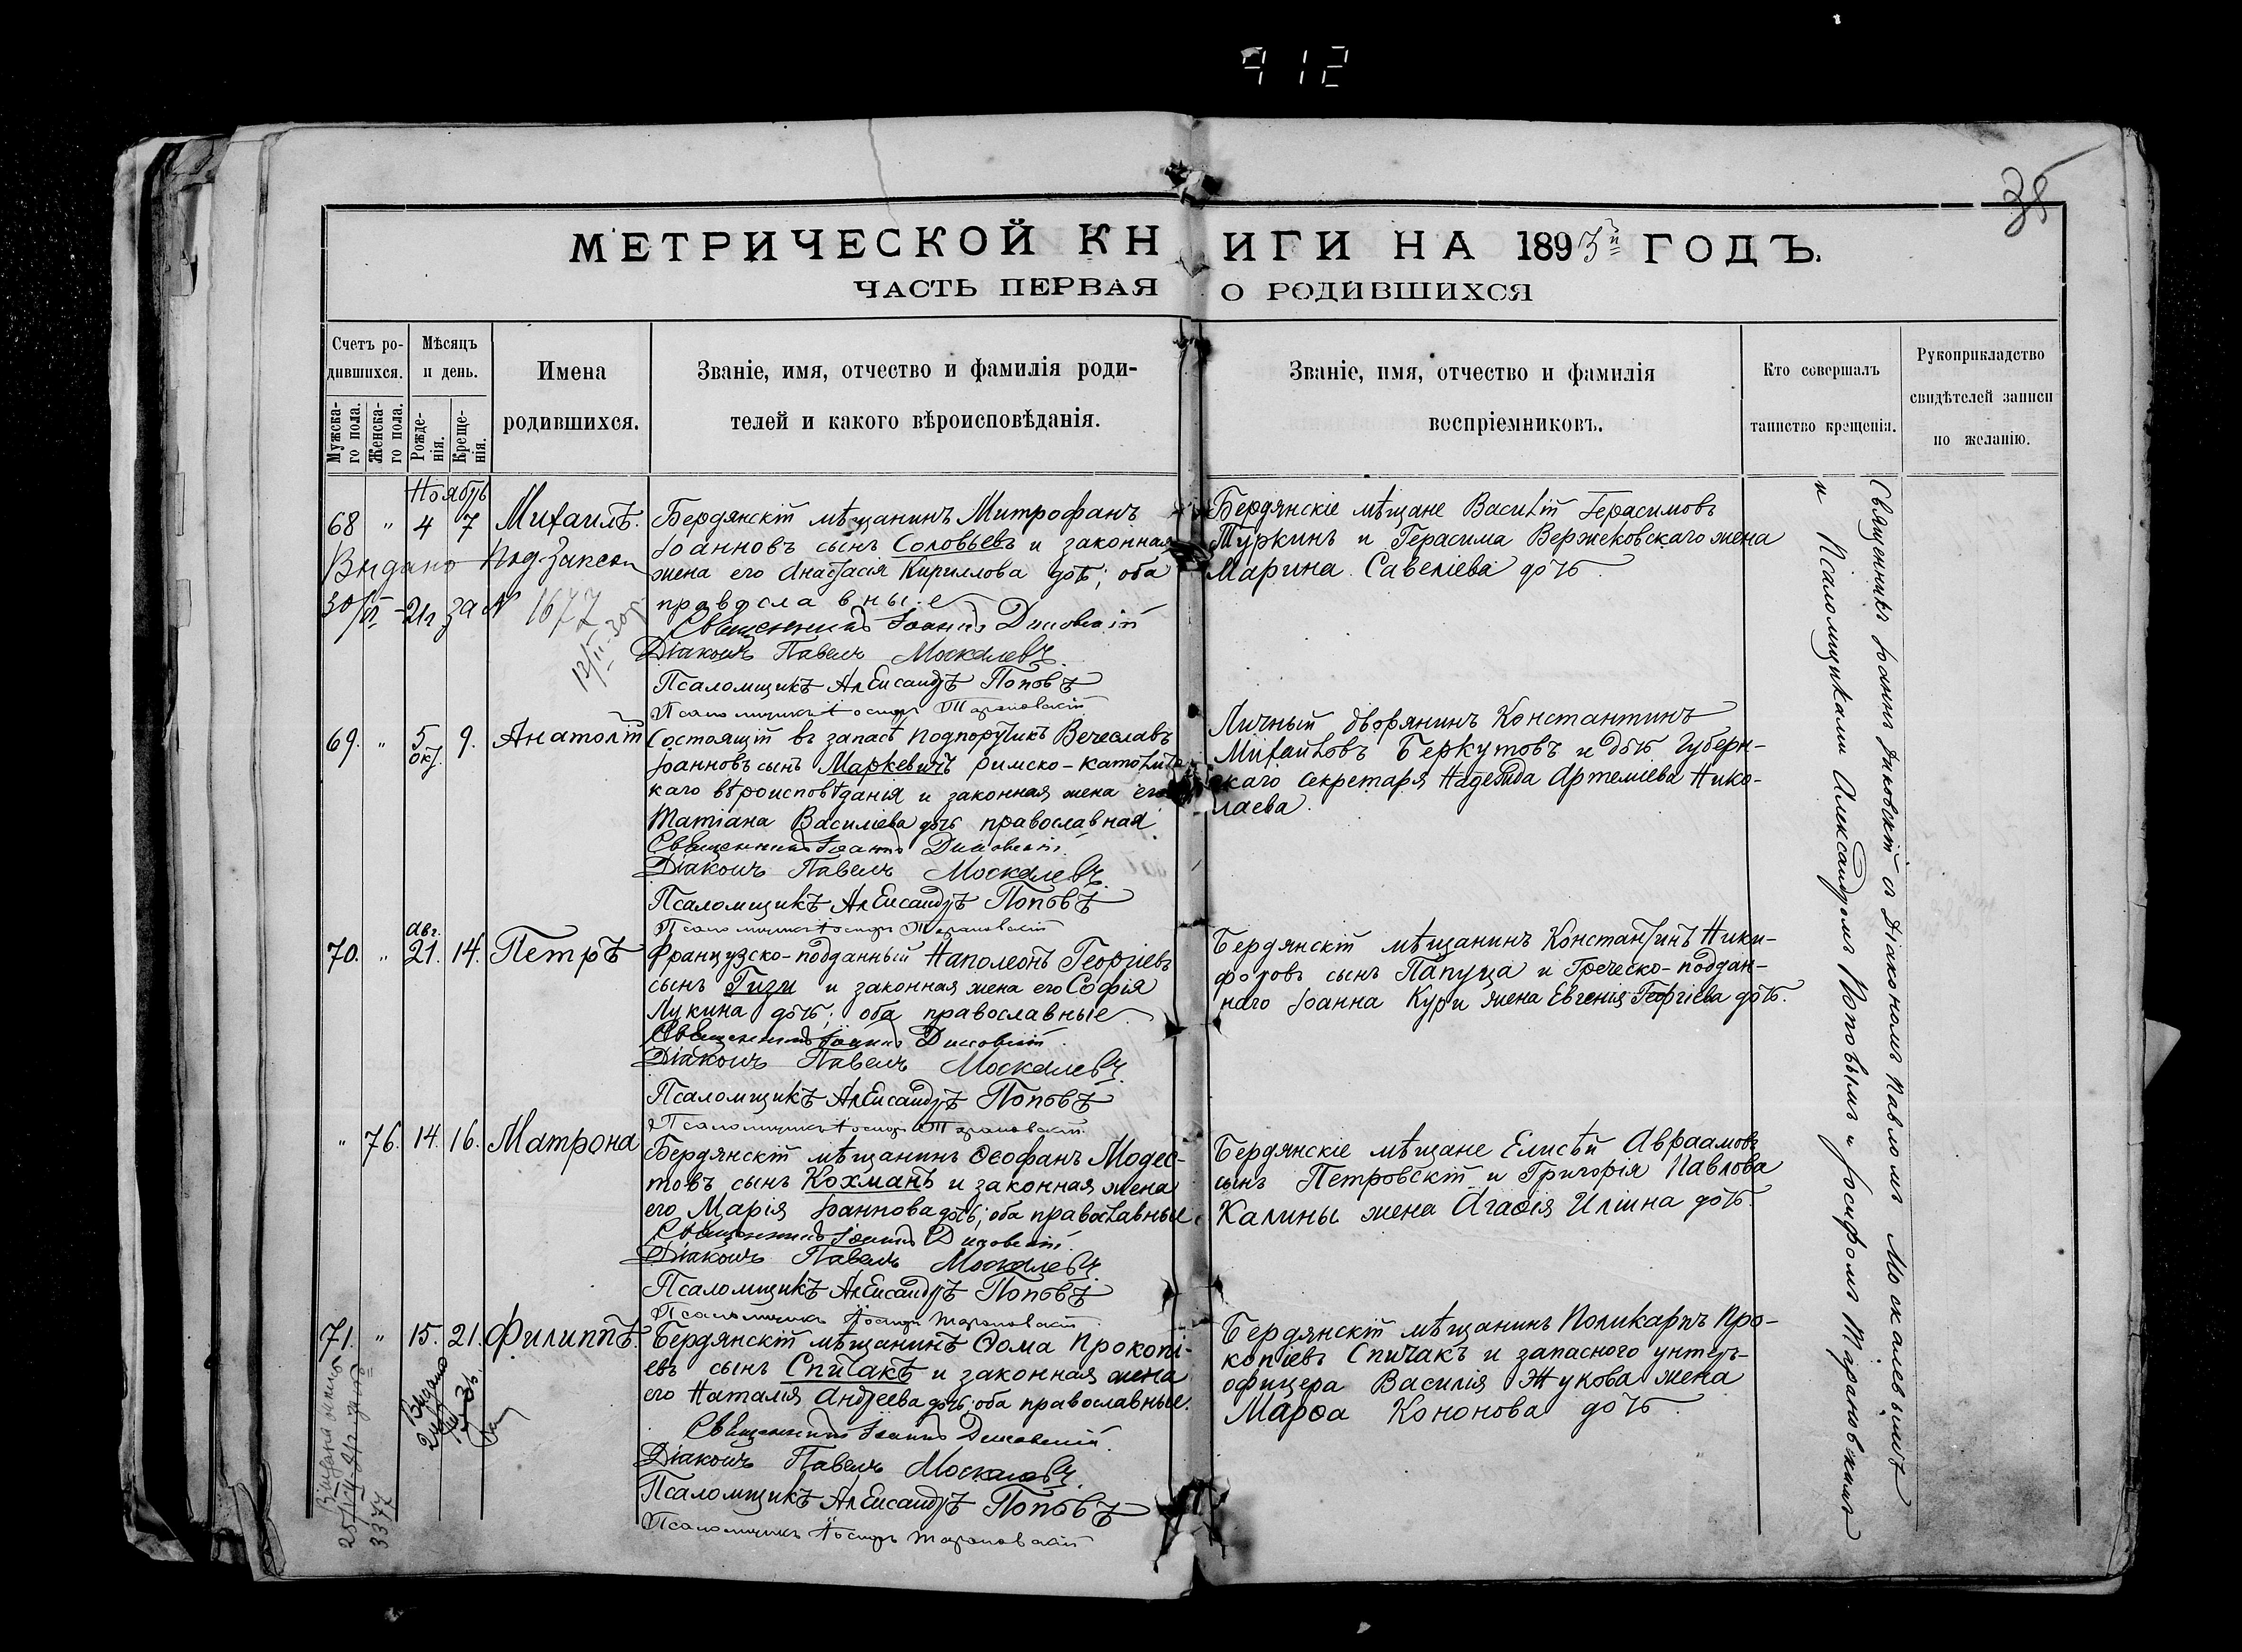 912
38
МЕТРИЧЕСКОЙ КНИГИ НА 1893й ГОДЪ.
ЧАСТЬ ПЕРВАЯ О РОДИВШИХСЯ
Счетъ ро-
дившихся.
Мужска-
го пола.
Женска-
го пола.
Мѣсяцъ
и день.
Рожде-
нія.
Креще-
нія.
Имена
родившихся.
Званіе, имя, отчество и фамилія роди-
телей и какого вѣроисповѣданія.
Званіе, имя, отчество и фамилія
воспріемниковъ.
Кто совершалъ
таинство крещенія.
Рукоприкладство
свидѣтелей записи
по желанію.
Ноябрь
68 " 4 7 Михаилъ.
Бердянскій мѣщанинъ Митрофанъ
Іоанновъ сынъ Соловьевъ и законная
жена его Анастасія Кириллова дочь; оба
православные
Священникъ Іоаннъ Диковскій
Діаконъ Павелъ Москалевъ.
Псаломщикъ Александръ Поповъ
Псаломщикъ Іосифъ Тарановскій
Бердянскіе мѣщане Василій Герасимовъ
Туркинъ и Герасима Вержековскаго жена
Марина Савеліева дочь.
Видано
1677
12/II-30р.
69. " 5 окт. 9. Анатолій
Состоящій въ запасѣ подпоручикъ Вечеславъ
Іоанновъ сынъ Маркевичъ римско-католичес-
каго вѣроисповѣданія и законная жена его
Татіана Василіева дочь православная
Священникъ Іоаннъ Диковскій.
Діаконъ Павелъ Москалевъ.
Псаломщикъ Александръ Поповъ
Псаломщикъ Іосифъ Тарановскій
Личный дворянинъ Константинъ
Михайловъ Беркутовъ и дочь Губерн-
скаго секретаря Надежда Артеміева Нико-
лаева.
70. " Авг. 21. 14. Петръ
Французско-подданный Наполеонъ Георгіевъ
сынъ Гизи и законная жена его Софія
Лукина дочь; оба православные
Священникъ Іоаннъ Диковскій.
Діаконъ Павелъ Москалевъ.
Псаломщикъ Александръ Поповъ
Псаломщикъ Іосифъ Тарановскій
Бердянскій мѣщанинъ Константинъ Ники-
форовъ сынъ Папуца и Греческо-поддан-
наго Іоанна Кури жена Евгенія Георгіева дочь.
" 76. 14. 16. Матрона
Бердянскій мѣщанинъ Ѳеофанъ Модес-
товъ сынъ Кохманъ и законная жена
его Марія Іоаннова дочь; оба православные.
Священникъ Іоаннъ Диковскій.
Діаконъ Павелъ Москалевъ.
Псаломщикъ Александръ Поповъ
Псаломщикъ Іосифъ Тарановскій
Бердянскіе мѣщане Елисѣй Авраамовъ
сынъ Петровскій и Григорія Павлова
Калины жена Агаѳія Иліина дочь.
71. " 15. 21. Филиппъ.
Бердянскій мѣщанинъ Ѳома Прокопі-
евъ сынъ Спичакъ и законная жена
его Наталія Андреева дочь; оба православные.
Священникъ Іоаннъ Диковскій.
Діаконъ Павелъ Москалевъ.
Псаломщикъ Александръ Поповъ
Псаломщикъ Іосифъ Тарановскій
Бердянскій мѣщанинъ Поликарпъ Про-
копіевъ Спичакъ и запасного унтеръ-
офицера Василія Жукова жена
Марѳа Кононова дочь.
3377
Священникъ Іоаннъ Диковскій съ Діакономъ Павломъ Москалевымъ
и Псаломщиками Александромъ Поповымъ и Іосифомъ Тарановскимъ